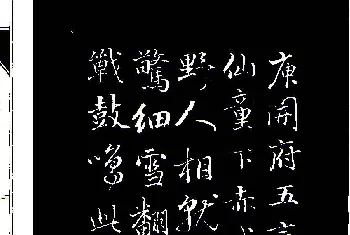 庾開府五言
仙童下赤城
野人相就
驚細雪翻
戰鼓鳴此